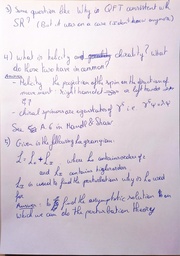 3) Some question like Why is QFT consistent with
SR? (But it was on a case I didn't know anymore)
4) What is helicity and chirality? What
do these two have in common?
Answer
- Helicity the projection of the spin on the direction of
movement right handed or left handed
- chiral spinors are eigenstates of γ⁵ i.e. γ⁵ψ = ±ψ
See A.6 in Mandl & Shaw
5) Given is the following Lagrangian:
L = L₀ + L₁ where L₀ contains order
and L₁ contains higher orders.
L₁ is used to find the perturbations why is L₀ used
for
Answer: to find the asymptotic solution
which we can do the perturbation theory